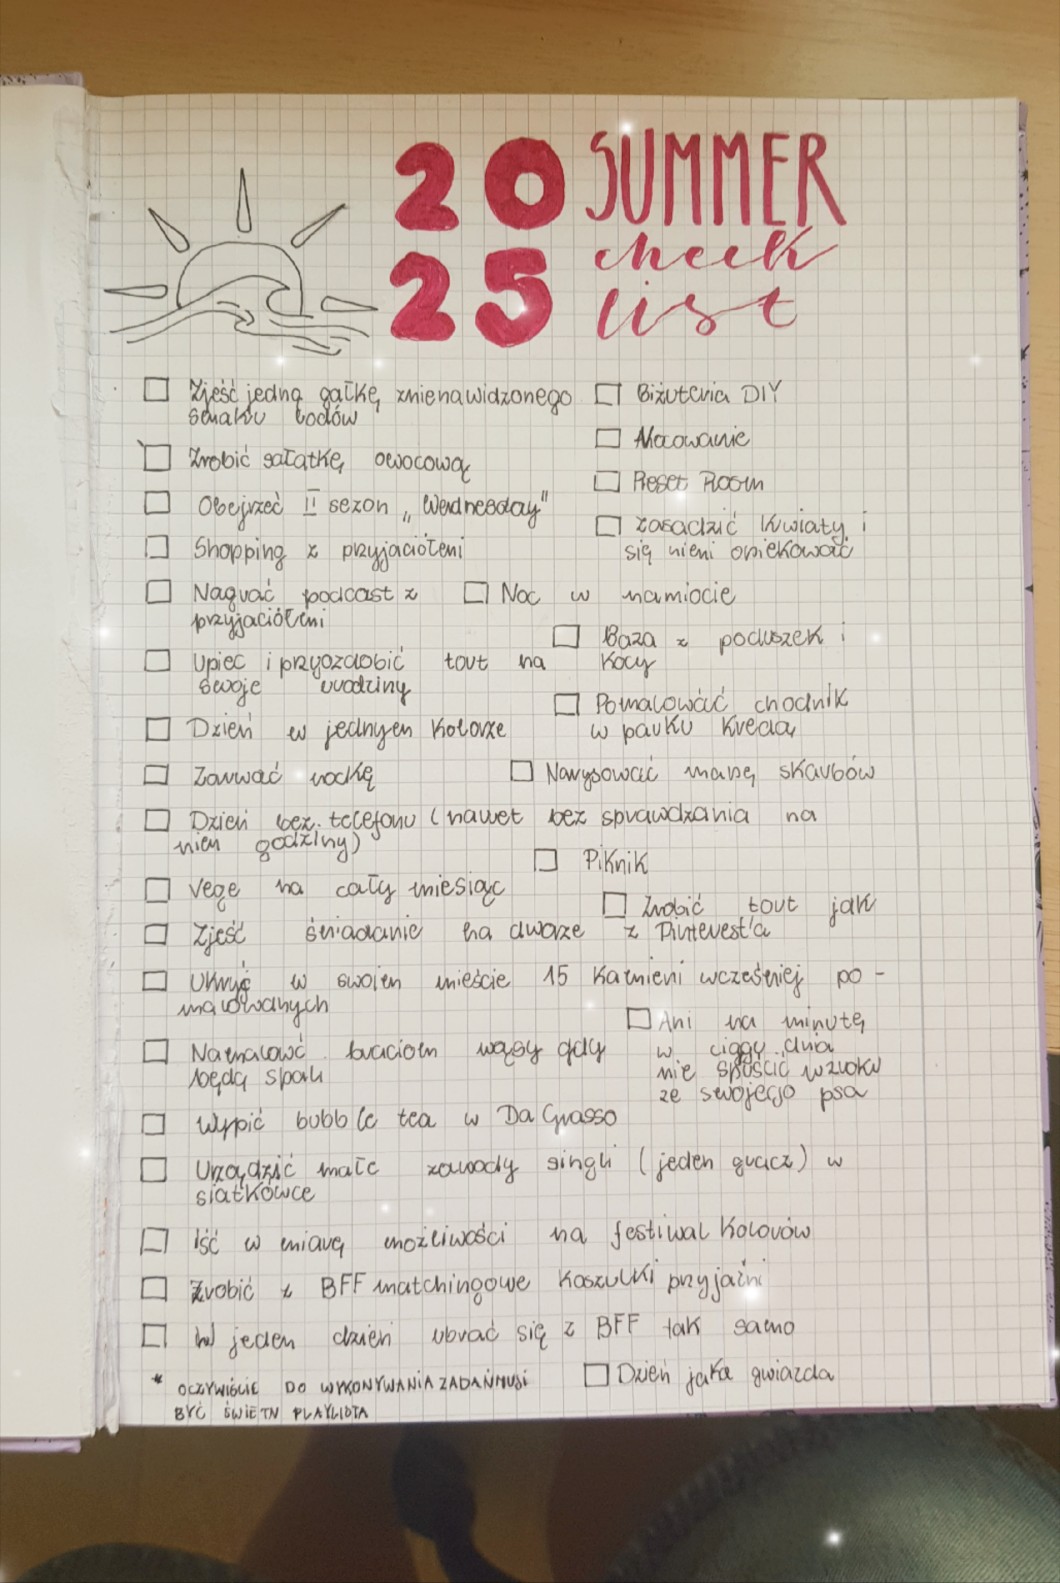 20 SUMMER
25 check
list
Zjeść jedną gałkę znienawidzonego
smaku lodów
Zrobić sałatkę owocową
Obejrzeć II sezon „Wednesday"
Shopping z przyjaciółeni
Nagrać podcast z
przyjaciółeni
Upiec i przyozdobić tort na
swoje urodziny
Dzień w jednyen kolorze
Zorwać nockę
Dzień bez telefonu (nawet bez sprawdzania na
nien godziny)
Vege na cały miesiąc
Zjeść śniadanie na dworze
Ukryć w swoien mieście 15 kamieni wcześniej po-
malowanych
Namalowć braciom wąsy gdy
będą spali
Wypić bubble tea w Da Grasso
Urządzić małe zawody singli (jeden gracz) w
siatkówce
Iść w miarę możliwości na festiwal kolorów
Zrobić z BFF matchingowe koszulki przyjaźni
W jeden dzień ubrać się z BFF tak samo
* OCZYWIŚCIE DO WYKONYWANIA ZADAŃ MUSI
BYĆ ŚWIETN PLAYLISTA
Biżuteria DIY
Malowanie
Reset Room
Zasadzić kwiaty i
się nieni opiekować
Noc w namiocie
Baza z poduszek i
kocy
Pomalować chodnik
w parku kredą
Narysować mapę skarbów
Piknik
Zrobić tort jak
z Pinterest'a
Ani na minutę
w ciągu dnia
nie spuścić wzroku
ze swojego psa
Dzień jaka gwiazda